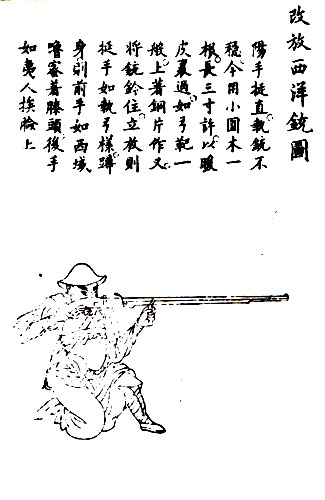 改放西洋銃圖
陽手挺直執銃不
穩今用小圓木一
根長三寸許以暖
皮裹過如弓靶一
般上著鋼片作叉
將銃鈐住立放則
挺手如執弓樣蹲
身則前手如西域
嚕密著膝頭後手
如夷人挨臉上